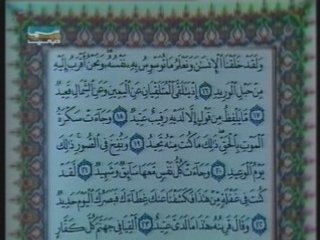 ولقد خلقنا الإنسن ونعلم ما توسوس به نفسه ونحن أقرب إليه
من حبل الوريد ١٦ إذ يتلقى المتلقيان عن اليمين وعن الشمال قعيد
١٧ ما يلفظ من قول إلا لديه رقيب عتيد ١٨ وجاءت سكرة
الموت بالحق ذلك ما كنت منه تحيد ١٩ ونفخ في الصور ذلك
يوم الوعيد ٢٠ وجاءت كل نفس معها سائق وشهيد ٢١ لقد
كنت في غفلة من هذا فكشفنا عنك غطاءك فبصرك اليوم حديد
٢٢ وقال قرينه هذا ما لدي عتيد ٢٣ ألقيا في جهنم كل كفار